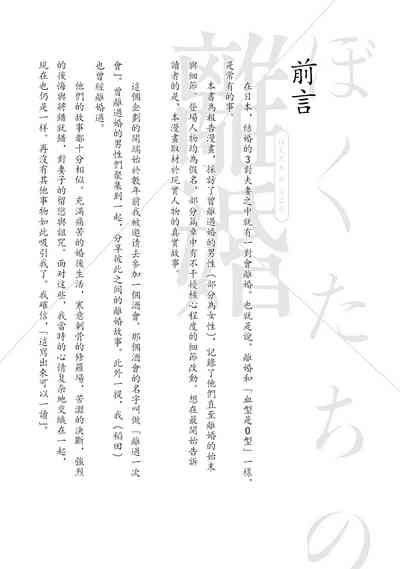 ぼくたちの
離婚
前言
在日本，結婚的3對夫妻之中就有一對會離婚。也就是說，離婚和「血型是O型」一樣，
是常有的事。
本書為報告漫畫，採訪了曾離過婚的男性（部分為女性），記錄了他們直至離婚的始末
與細節。登場人物均為假名，部分篇章中有不干擾核心程度的細節改動。想在最開始告訴
讀者的是，本漫畫取材於現實人物的真實故事。
這個企劃的開端始於數年前我被邀請去參加一個酒會。那個酒會的名字叫做「離過一次
會」。曾離過婚的男性們聚集到一起，分享彼此之間的離婚故事。此外一提，我（稻田）
也曾經離婚過。
他們的故事都十分相似。充滿痛苦的婚後生活，寒意刺骨的修羅場，苦澀的決斷，強烈
的後悔與將錯就錯，對妻子的留戀與詛咒。面對這些，我當時的心情复杂地交織在一起，
現在也仍是一樣。再沒有其他事物如此吸引我了。我確信，「這寫出來可以一讀」。